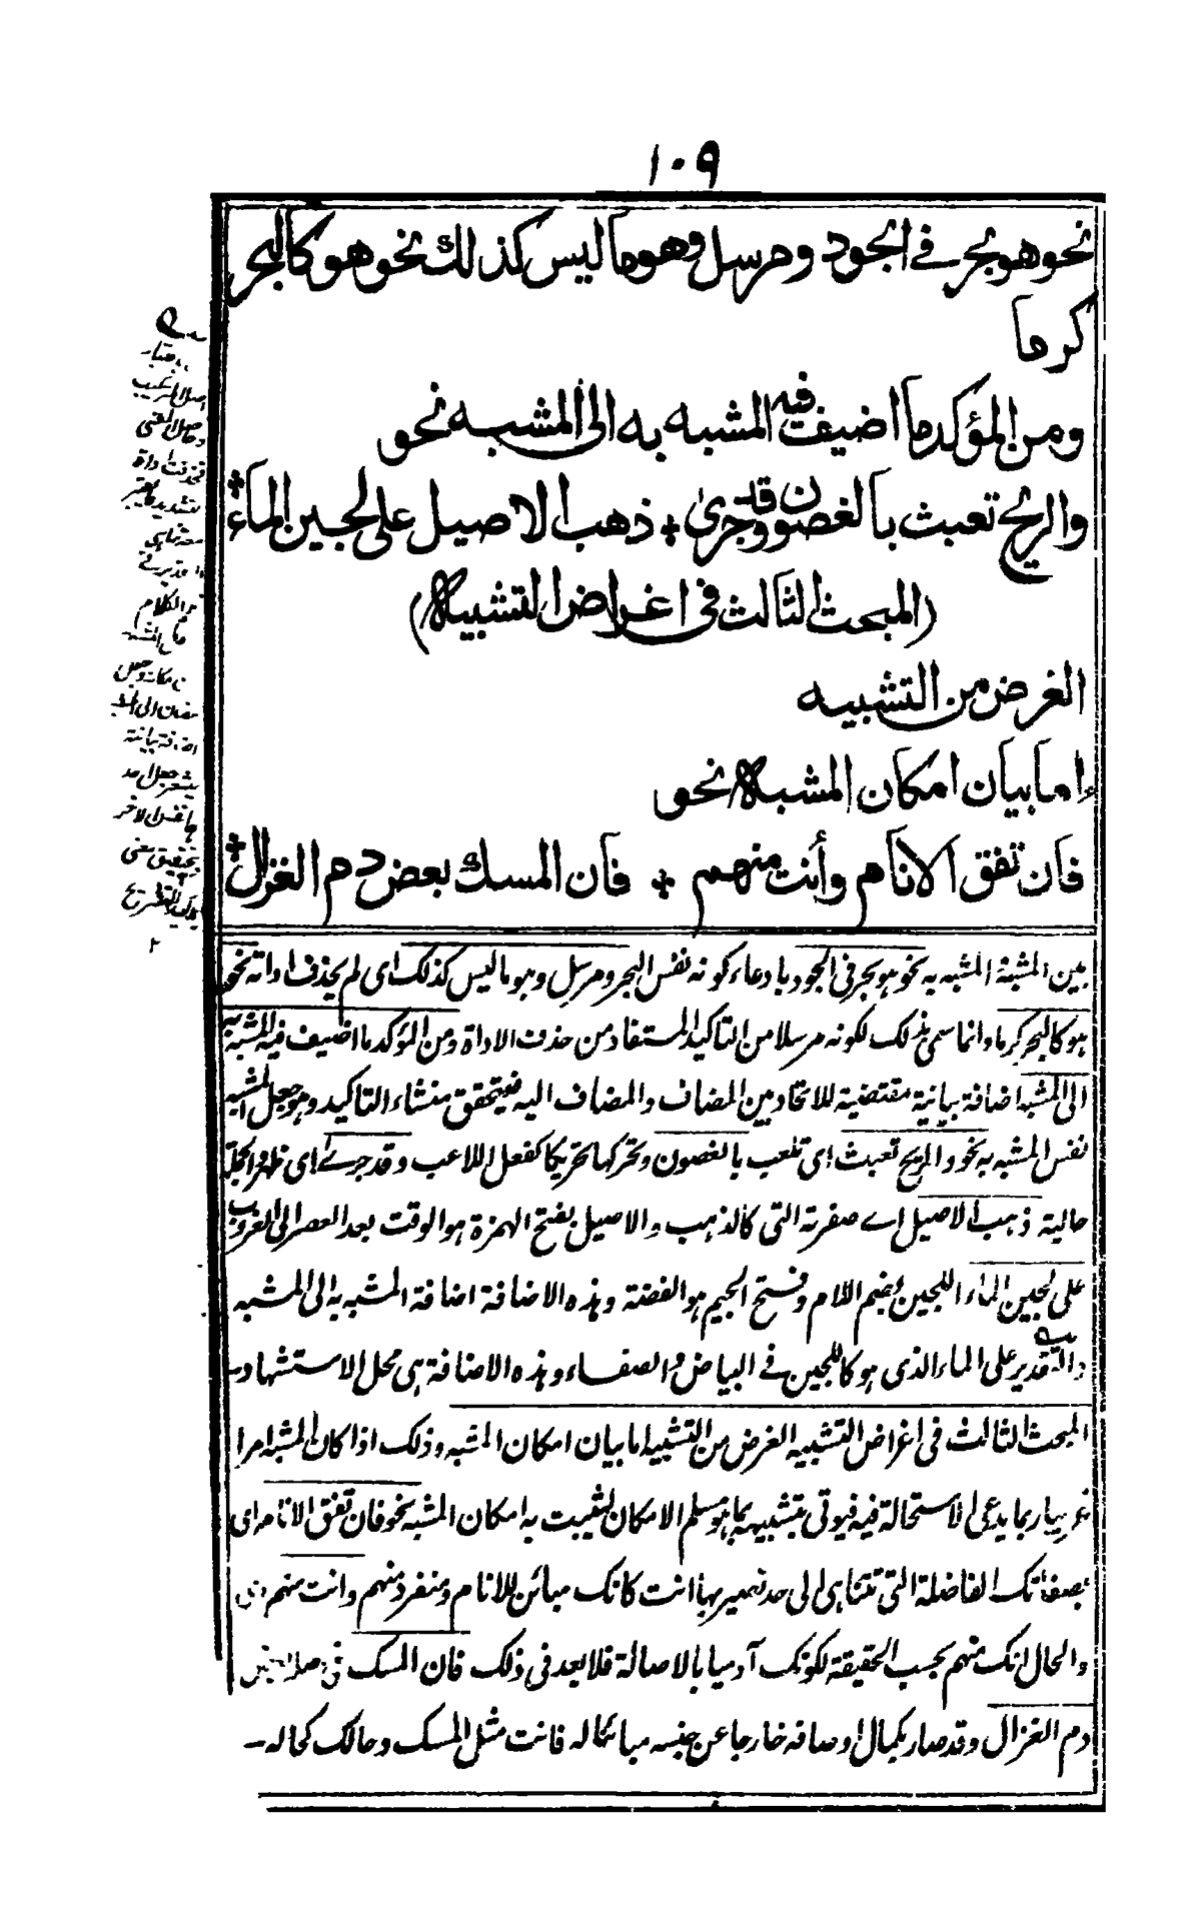 ١٠٩
نحو هو بحر في الجود ومرسل وهو ما ليس كذلك نحو هو كالبحر
كرما
ومن المؤكد ما اضيف فيه المشبه به الى المشبه نحو
والريح تعبث بالغصون وقد جرى ٭ ذهب الاصيل على لجين الماء ٭
(المبحث الثالث في اغراض التشبيه)
الغرض من التشبيه
إما بيان امكان المشبه نحو
فان تفق الانام وأنت منهم ٭ فان المسك بعض دم الغزال ٭
بين المشبه المشبه به نحو هو بحر فى الجود بادعاء كونه نفس البحر ومرسل وهو ما ليس كذلك اى لم يحذف اداته نحو
هو كالبحر كرما وانما سمى بذلك لكونه مرسلا من التاكيد المستفاد من حذف الاداة ومن المؤكد ما اضيف فيه المشبه به
الى المشبه اضافة بيانية مقتضية للاتحاد بين المضاف والمضاف اليه فيتحقق منشاء التاكيد وهو جعل المشبه
نفس المشبه به نحو والريح تعبث اى تلعب بالغصون وتحركها تحريكا كفعل اللاعب وقد جرى اى ظهر والجملة
حالية ذهب الاصيل اے صفرته التى كالذهب والاصيل بفتح الهمزة هو الوقت بعد العصر الى الغروب
على لجين الماء اللجين بضم اللام وفتح الجيم هو الفضة وهذه الاضافة اضافة المشبه به الى المشبه
والتقدير على الماء الذى هو كاللجين في البياض والصفاء وهذه الاضافة هى محل الاستشهاد
المبحث الثالث فى اغراض التشبيه الغرض من التشبيه اما بيان امكان المشبه وذلك اذا كان المشبه امرا
غريبا ربما يدعى الاستحالة فيه فيوتى بتشبيهه بما هو مسلم الامكان ليثبت به امكان المشبه نحو فان تفق الانام اى
بصفاتك الفاضلة التى تتناهى الى حد تصير بها انت كانك مبائن للانام ومنفرد منهم وانت منهم
والحال انك منهم بحسب الحقيقة لكونك آدميا بالاصالة فلا بعد فى ذلك فان المسك فى
دم الغزال وقد صار بكمال اوصافه خارجا عن جنسه مبائنا له فانت مثل المسك وحالك كحاله
اصل التركيب
وحاصل المعنى
فحذفت اداة
الكلام
اضافة بيانية
تحقيق معنى